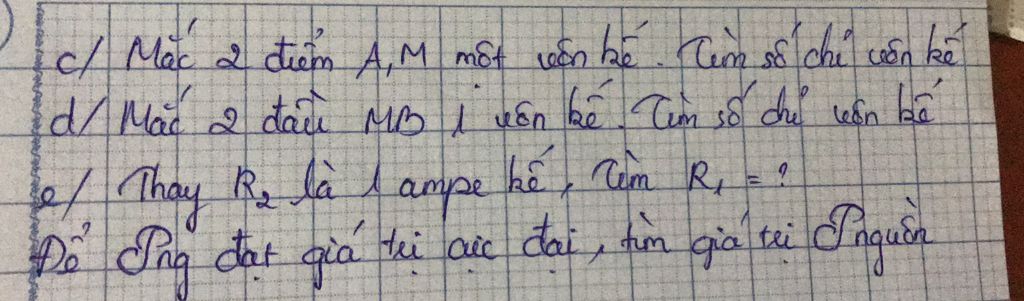 c/ Mắc 2 điểm A, M một vôn kế. Tìm số chỉ vôn kế
d/ Mắc 2 đầu MB 1 vôn kế. Tìm số chỉ vôn kế
e/ Thay R₂ là 1 ampe kế, Tìm R₁ = ?
Để Png đạt giá trị cực đại, tìm giá trị Pnguồn